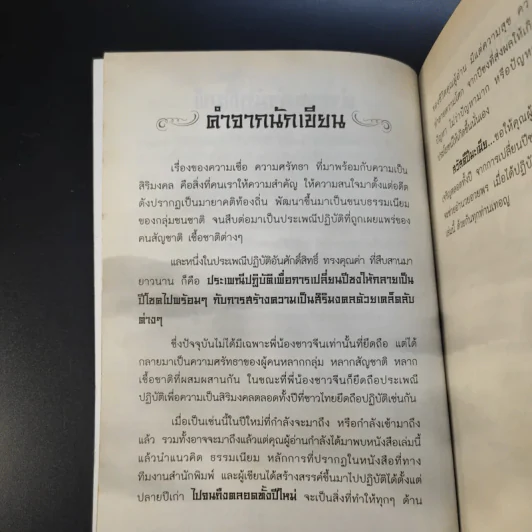 คำจากนักเขียน
เรื่องของความเชื่อ ความศรัทธา ที่มาพร้อมกับความเป็น
สิริมงคล คือสิ่งที่คนเราให้ความสำคัญ ให้ความสนใจมาตั้งแต่อดีต
ดังปรากฏเป็นมายาคติท้องถิ่น พัฒนาขึ้นมาเป็นขนบธรรมเนียม
ของกลุ่มชนชาติ จนสืบต่อมาเป็นประเพณีปฏิบัติที่ถูกเผยแพร่ของ
คนสัญชาติ เชื้อชาติต่างๆ
และหนึ่งในประเพณีปฏิบัติอันศักดิ์สิทธิ์ ทรงคุณค่า ที่สืบสานมา
ยาวนาน ก็คือ ประเพณีปฏิบัติเพื่อการเปลี่ยนปีชงให้กลายเป็น
ปีโชคไปพร้อมๆ กับการสร้างความเป็นสิริมงคลด้วยเคล็ดลับ
ต่างๆ
ซึ่งปัจจุบันไม่ได้มีเฉพาะพี่น้องชาวจีนเท่านั้นที่ยึดถือ แต่ได้
กลายมาเป็นความศรัทธาของผู้คนหลากกลุ่ม หลากสัญชาติ หลาก
เชื้อชาติที่ผสมผสานกัน ในขณะที่พี่น้องชาวจีนก็ยึดถือประเพณี
ปฏิบัติเพื่อความเป็นสิริมงคลตลอดทั้งปีที่ชาวไทยยึดถือปฏิบัติเช่นกัน
เมื่อเป็นเช่นนี้ในปีใหม่ที่กำลังจะมาถึง หรือกำลังเข้ามาถึง
แล้ว รวมทั้งอาจจะมาถึงแล้วแต่คุณผู้อ่านกำลังได้มาพบหนังสือเล่มนี้
แล้วนำแนวคิด ธรรมเนียม หลักการที่ปรากฏในหนังสือที่ทาง
ทีมงานสำนักพิมพ์ และผู้เขียนได้สร้างสรรค์ขึ้นมาไปปฏิบัติได้ตั้งแต่
ปลายปีเก่า ไปจนถึงตลอดทั้งปีใหม่ จะเป็นสิ่งที่ทำให้ทุกๆ ด้าน
ของชีวิตคุณผู้อ่าน มีแต่ความสุข
จากปีชงที่ส่งผลให้เกิด
ปัญหา ไม่ว่าปัญหามาก หรือปัญหา
สวัสดีปีมะเมีย...ขอให้คุณผู้
จากการเปลี่ยนปีชง
เมื่อได้ปฏิบัติ
เล่มนี้ ด้วยกันทุกท่านเทอญ